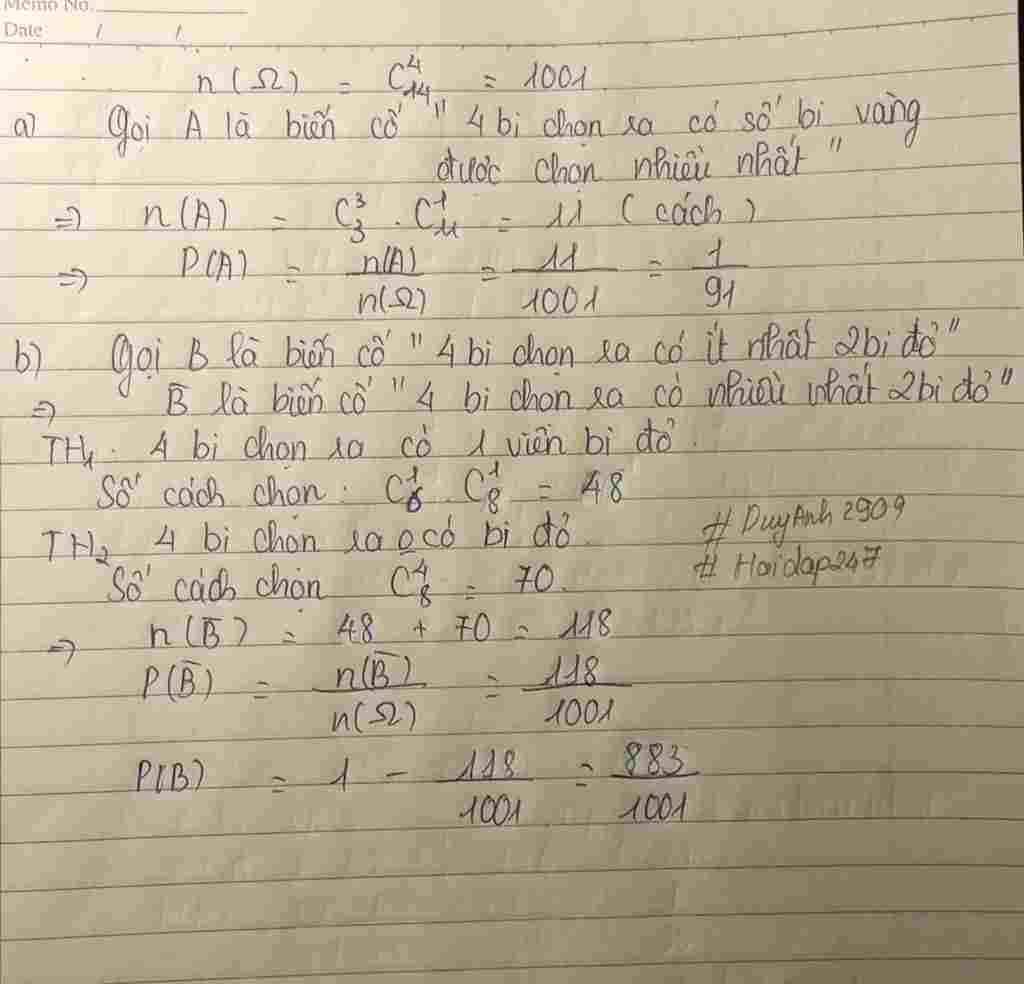 Memo No.
Date / /
n(Ω) = C⁴₁₄ = 1001
a) Gọi A là biến cố " 4 bi chọn ra có số bi vàng
được chọn nhiều nhất "
=> n(A) = C³₃ . C¹₁₁ = 11 (cách)
=> P(A) = n(A)/n(Ω) = 11/1001 = 1/91
b) Gọi B là biến cố " 4 bi chọn ra có ít nhất 2 bi đỏ"
=> B̅ là biến cố " 4 bi chọn ra có nhiều nhất 2 bi đỏ"
TH₁. 4 bi chọn ra có 1 viên bi đỏ.
Số cách chọn : C¹₆ . C¹₈ = 48
# DuyAnh 2909
TH₂ 4 bi chọn ra o có bi đỏ.
# Hoidap247
Số cách chọn C⁴₈ = 70.
=> n(B̅) = 48 + 70 = 118
P(B̅) = n(B̅)/n(Ω) = 118/1001
P(B) = 1 - 118/1001 = 883/1001